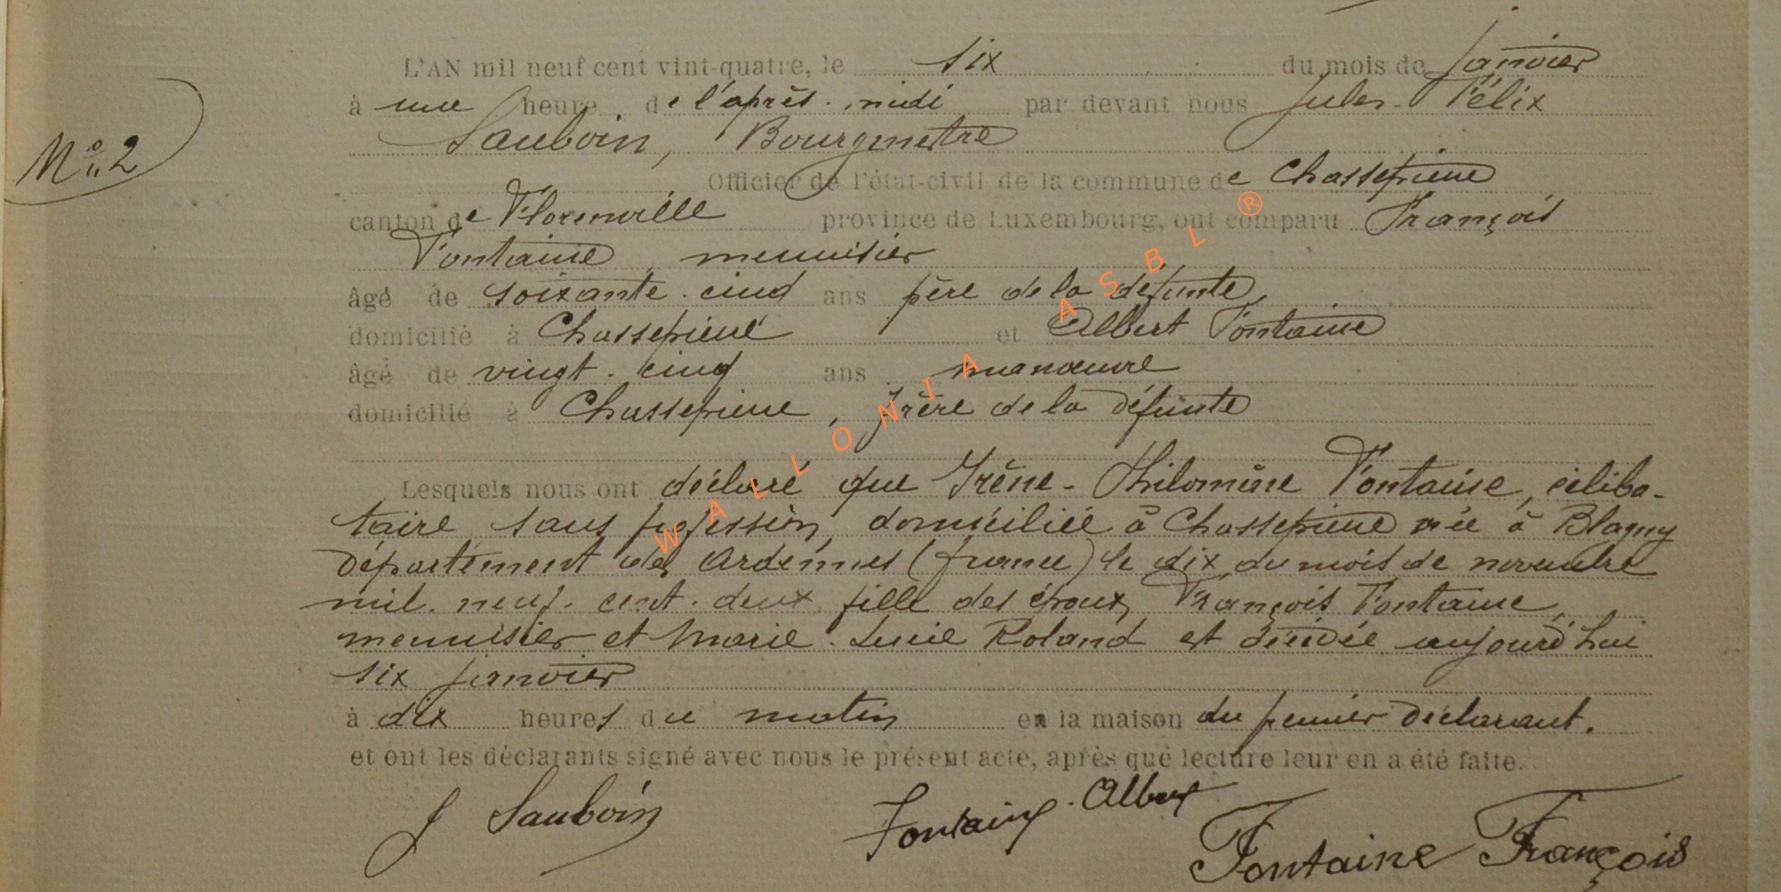 L'AN mil neuf cent vint-quatre, le six du mois de janvier
à une heure de l'après-midi par devant nous Jules-Félix
N° 2
Sauboin, Bourgmestre
Officier de l'état-civil de la commune de Chassepierre
canton de Florenville province de Luxembourg, ont comparu François
Fontaine, menuisier
âgé de soixante-cinq ans père de la défunte,
domicilié à Chassepierre et Albert Fontaine
âgé de vingt-cinq ans manœuvre
domicilié à Chassepierre, frère de la défunte
Lesquels nous ont déclaré que Irène-Philomène Fontaine, céliba-
taire sans profession, domiciliée à Chassepierre née à Blagny
département des Ardennes (france) le dix du mois de novembre
mil-neuf-cent-deux, fille des époux, François Fontaine,
menuisier et Marie-Lucie Roland est décédée aujourd'hui
six janvier
à dix heures du matin en la maison du premier déclarant.
et ont les déclarants signé avec nous le présent acte, après que lecture leur en a été faite.
J Sauboin Fontaine Albert
Fontaine François
WALLONIA ASBL ®